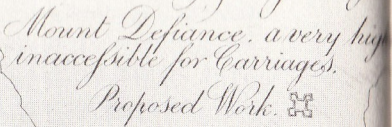 Mount Defiance. a very high
inacceſsible for Carriages.
Proposed Work.